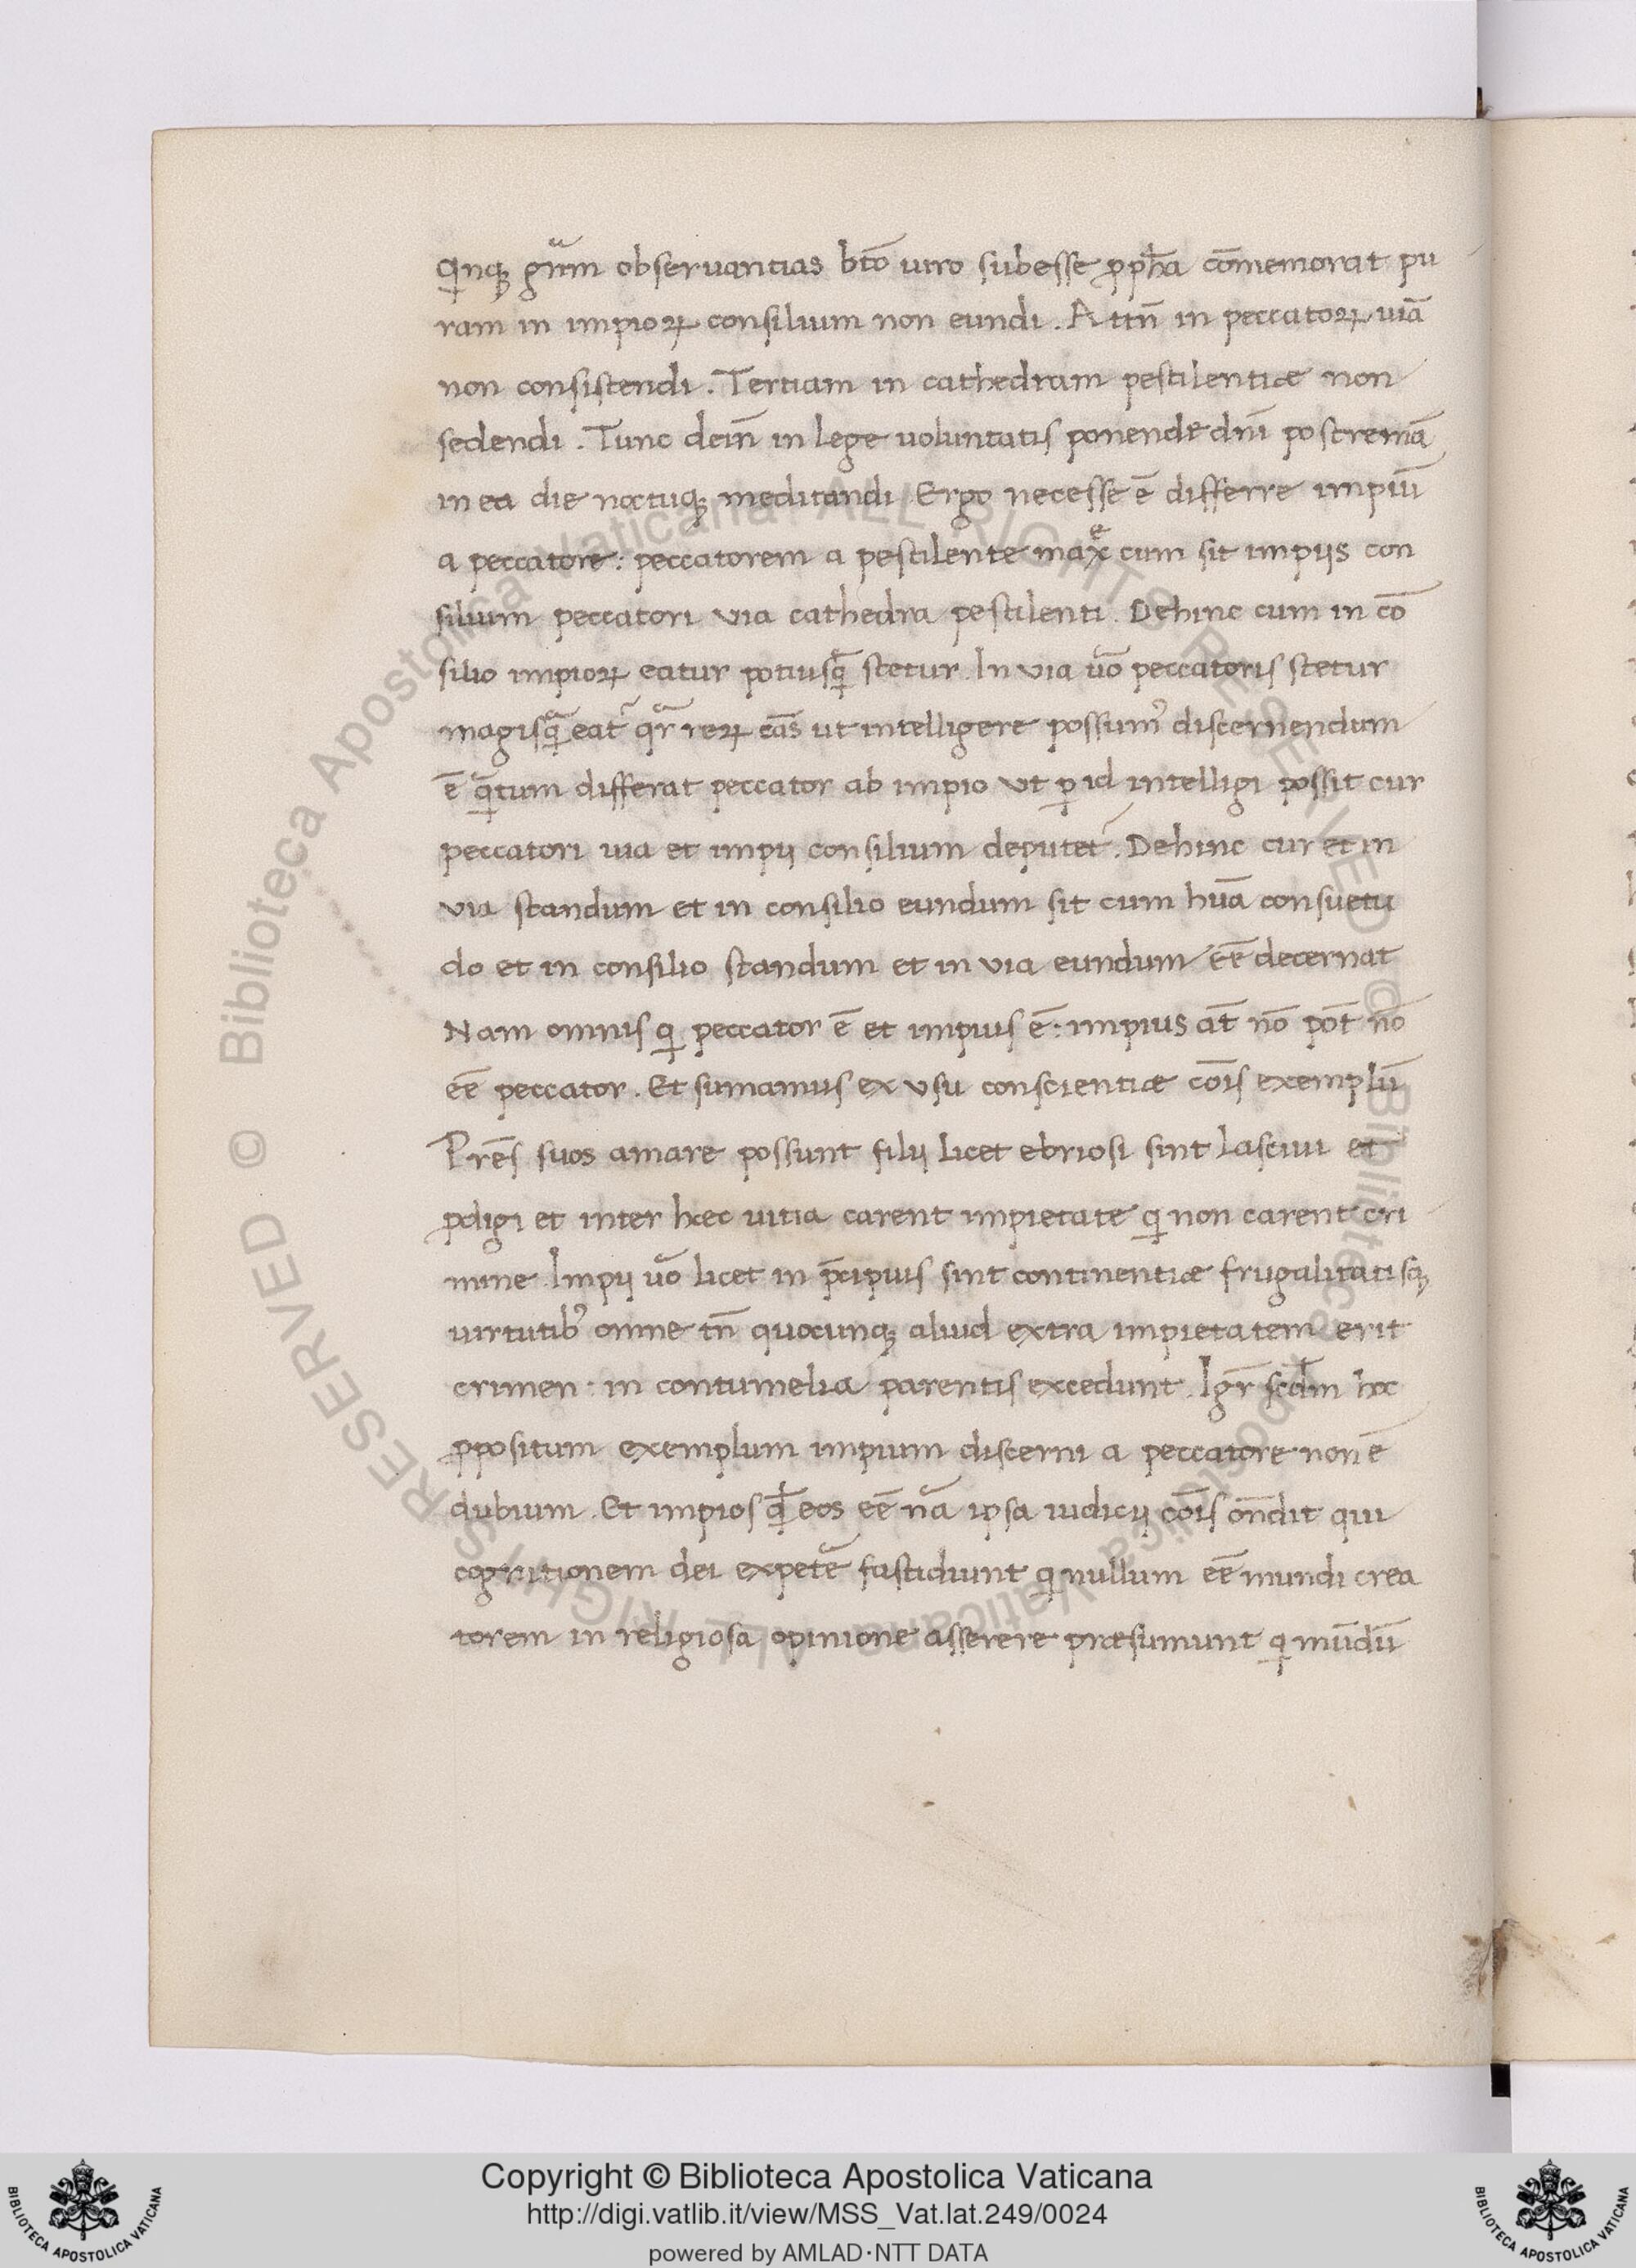 qinq; gr̃am obseruantias bt̃o uiro subesse ꝓph̃a cõmemorat pu
ram in impioꝝ consilium non eundi. A ttñ in peccatoꝝ uiã
non consistendi. Tertiam in cathedram pestilentiæ non
sedendi. Tunc dein̄ in lege uoluntatis ponendę dñi postremã
in ea die noctuq; meditandi. Ergo necesse ē differre impiũ
a peccatore: peccatorem a pestilente maxe cum sit impijs con
silium peccatori via cathedra pestilenti. Dehinc cum in cõ
silio impioꝝ eatur potiusq̃ stetur. In via uõ peccatoris stetur
magisq̃ eat᷑ qr̃ reꝝ cãs ut intelligere possum᷒ discernendum
ē q̃tum differat peccator ab impio vt ꝑ id intelligi possit cur
peccatori uia et impij consilium deputet᷑. Dehinc cur et in
via standum et in consilio eundum sit cum hũa consuetu
do et in consilio standum et in via eundum eē decernat
Nam omnis qi peccator ē et impius ē: impius at̃ nõ põt nõ
eē peccator. Et sumamus ex vsu conscientiæ cõis exemplũ
Prēs suos amare possunt filij licet ebriosi sint lasciui et
ꝓdigi et inter hæc uitia carent impietate qi non carent cri
mine. Impij uõ licet in p̃cipuis sint continentiæ frugalitatisq;
uirtutib᷒ omne tñ quocunq; aliud extra impietatem erit
crimen: in contumelia parentis excedunt. Igr̃ scd̃m hoc
ꝓpositum exemplum impium discerni a peccatore non ē
dubium. Et impios qd̃ eos eē nã ipsa iudicij cõis oñdit qui
cognitionem dei expetẽ fastidiunt qi nullum eē mundi crea
torem in religiosa opinione asserere præsumunt qi mũdũ
Copyright © Biblioteca Apostolica Vaticana
http://digi.vatlib.it/view/MSS_Vat.lat.249/0024
powered by AMLAD·NTT DATA